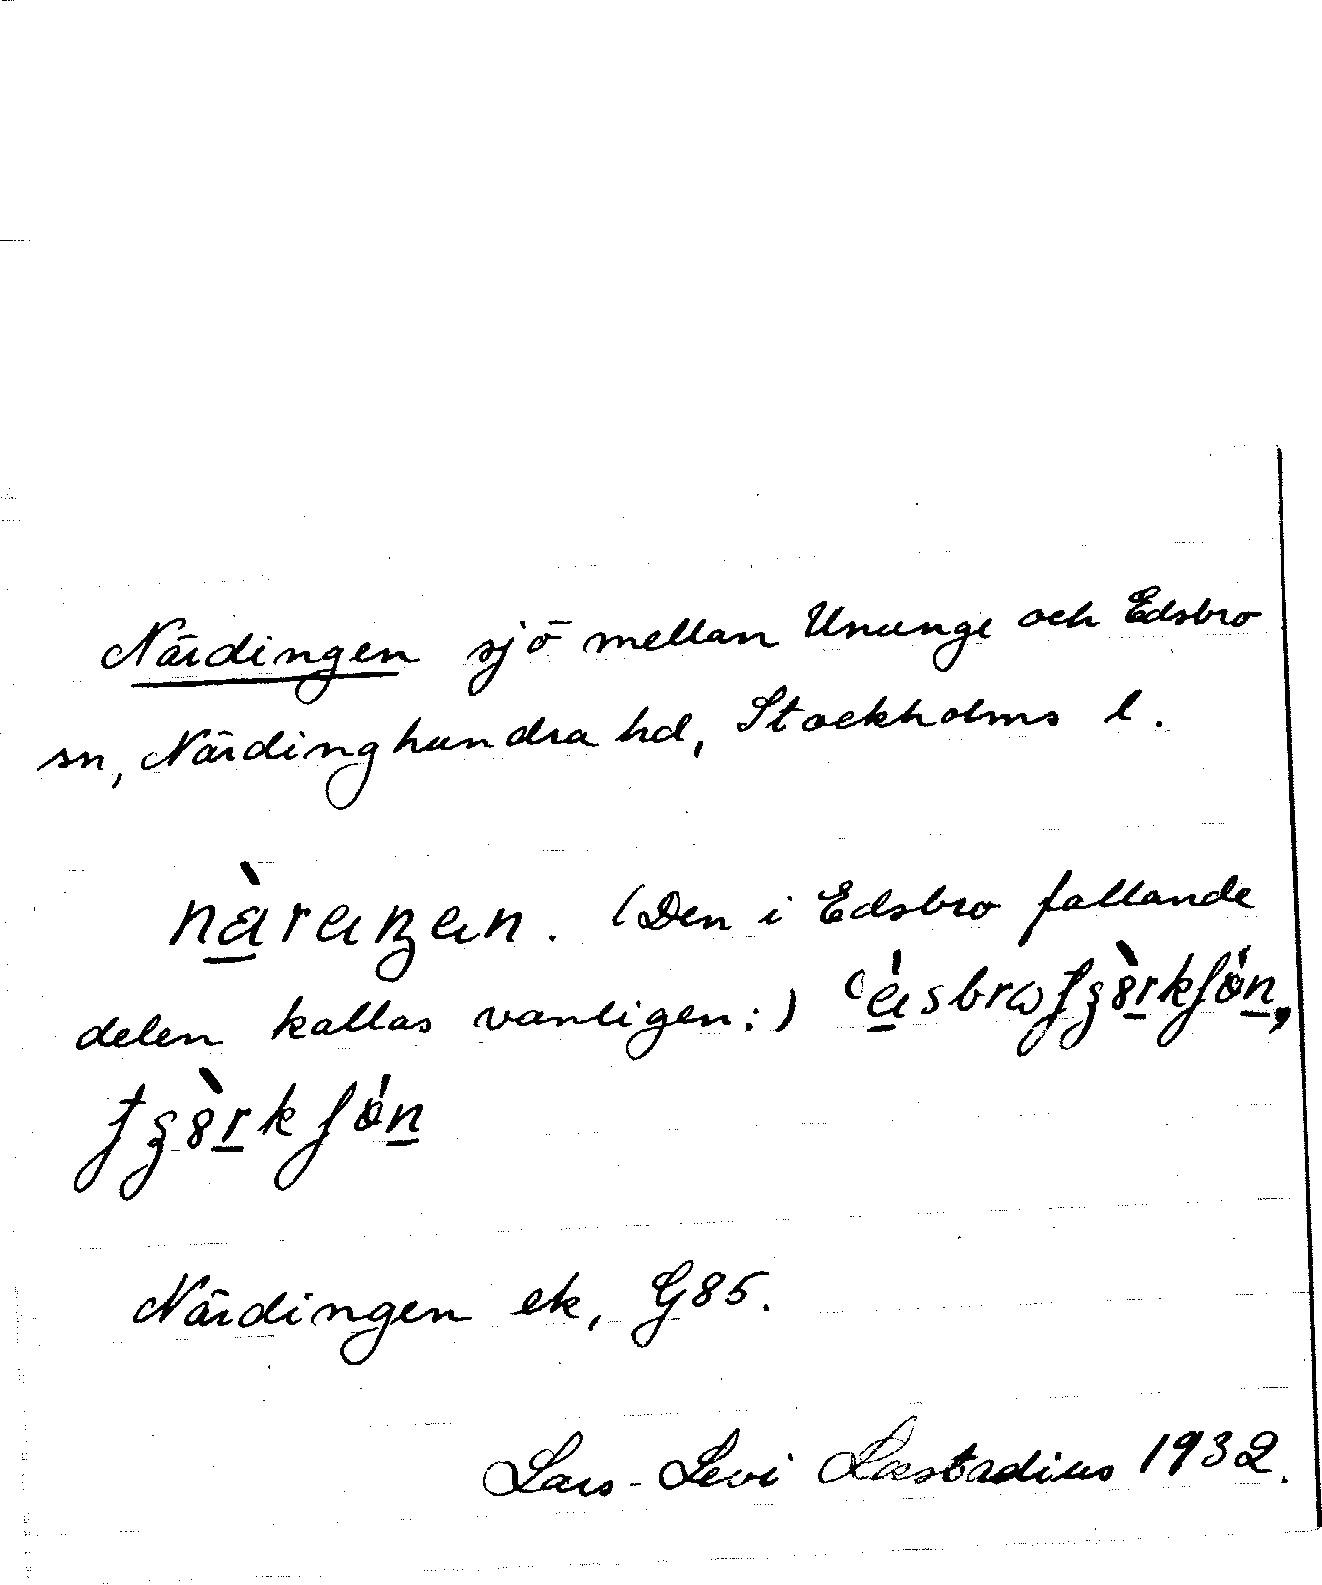 Närdingen sjö mellan Ununge och Edsbro
sn, Närdinghundra hd, Stockholms l.
(Den i Edsbro fallande
delen kallas vanligen:)
Närdingen ek, G85.
Lars-Levi Læstadius 1932.